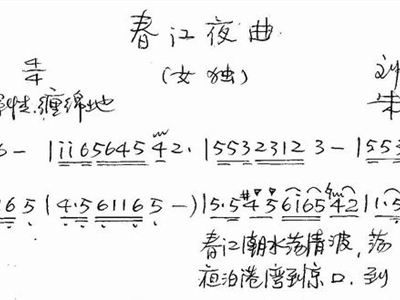 春江夜曲
4/4 (女独) 刘
缠绵地 朱
6 - | i i 6 5 6 4 5 4 2. | 5 5 3 2 3 1 2 3 - | 5 5 3
1 6 5 | 4. 5 6 1 1 6 5 - ) | 5. 5 #4 5 6 i 6 5 4 2 | 1. 5
春江潮水荡情波，荡
夜泊港湾到京口，到